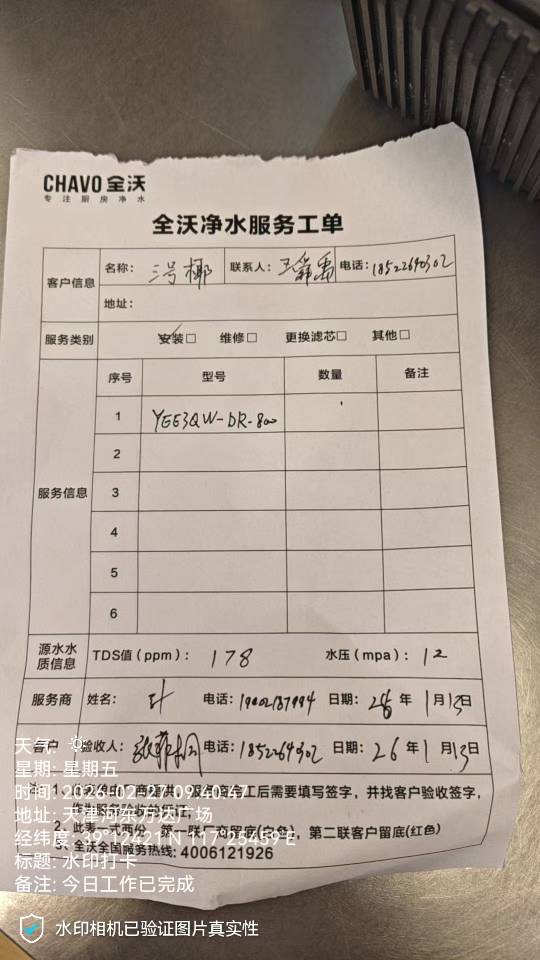 CHAVO 全沃
专注厨房净水
全沃净水服务工单
客户信息 名称：三号椰 联系人： 电话：18522640302
地址：
服务类别 安装□ 维修□ 更换滤芯□ 其他□
序号 型号 数量 备注
1 YE63QW-DR-800
2
服务信息 3
4
5
6
源水水质信息 TDS值（ppm）：178 水压（mpa）：12
服务商 姓名： 电话： 日期： 年 1月13日
客户 验收人： 电话：18522640302 日期：26年1月13日
天气：
星期: 星期五
时间: 2026-02-27 09:40:47
地址: 天津河东万达广场
经纬度: 39°12421 N 117°25459 E
标题: 水印打卡
备注: 今日工作已完成
完工后需要填写签字，并找客户验收签字，
第二联客户留底(红色)
全沃全国服务热线: 4006121926
水印相机已验证图片真实性